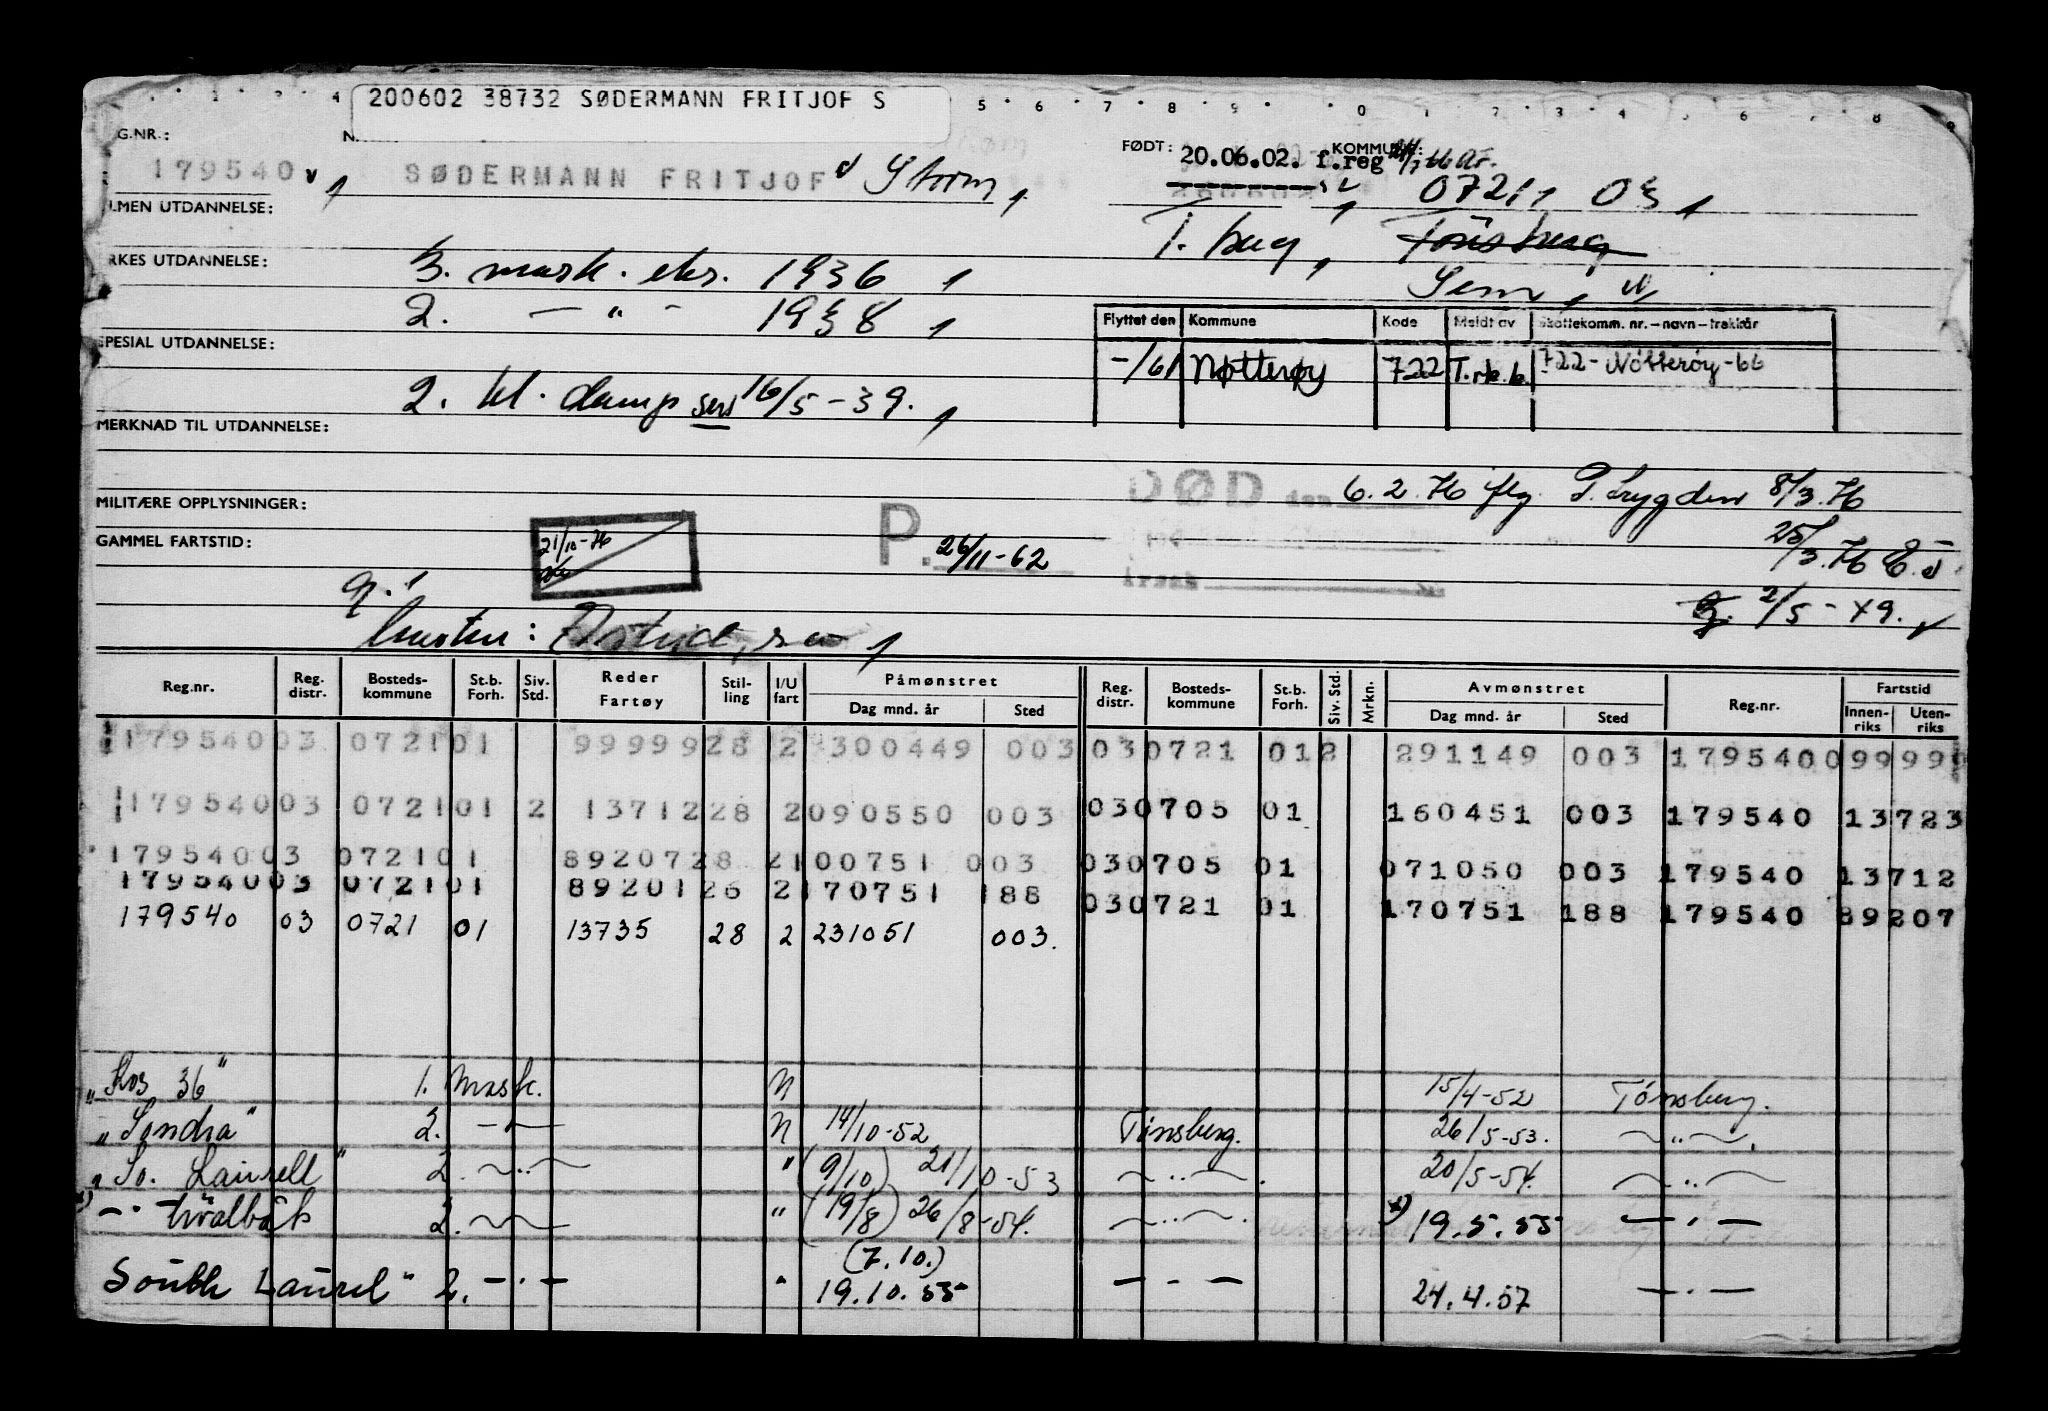 200602 38732 SØDERMANN FRITJOF S
G.NR.: N. FØDT: 20.06.02. f.reg KOMMUNE:
179540 SØDERMANN FRITJOF Storm, 0721, 03,
LMEN UTDANNELSE: T.berg, Tønsberg
RKES UTDANNELSE: 3. mask. eks. 1936, Sem,
2. — " — 1938,
Flyttet den Kommune Kode Meldt av Skattekomm. nr. – navn – trekkår
SPESIAL UTDANNELSE: -/61 Nøtterøy 722 T.rk.b. 722 - Nøtterøy - 66
2. kl. damp sert 16/5 - 39.,
MERKNAD TIL UTDANNELSE:
MILITÆRE OPPLYSNINGER: DØD den 6.2.76 flg. P. Trygden 8/3.76
GAMMEL FARTSTID: 21/10-76 P. 26/11-62 Årsak 25/3.76
2/5 - 49.
Reg.nr. Reg. distr. Bosteds-kommune St.b. Forh. Siv. Std. Reder Fartøy Stil-ling I/U fart Påmønstret Dag mnd. år Sted Reg. distr. Bosteds-kommune St.b. Forh. Siv. Std. Mrkn. Avmønstret Dag mnd. år Sted Reg.nr. Fartstid Innen-riks Uten-riks
179540 03 0721 01 99999 28 2 300449 003 03 0721 01 2 291149 003 179540 099999
179540 03 0721 01 2 13712 28 2 090550 003 03 0705 01 160451 003 179540 13723
179540 03 0721 01 89207 28 2 100751 003 03 0705 01 071050 003 179540 13712
179540 03 0721 01 89201 26 2 170751 188 03 0721 01 170751 188 179540 89207
179540 03 0721 01 13735 28 2 231051 003.
"Kos 36" 1. Mask. N 15/4-52 Tønsberg.
"Sondra" 2. — " — N 14/10-52 Tønsberg. 26/5-53. — " —.
"So. Laurell" 2. — " — " (9/10) 21/10-53 — " —. 20/5-54. — " —
x) — " Hvalbåk 2. — " (19/8) 26/8-54. — " —. x) 19.5.55 — " —
(7.10.)
South Laurel" 2. — " — " 19.10.55 — " — 24.4.57 — " —